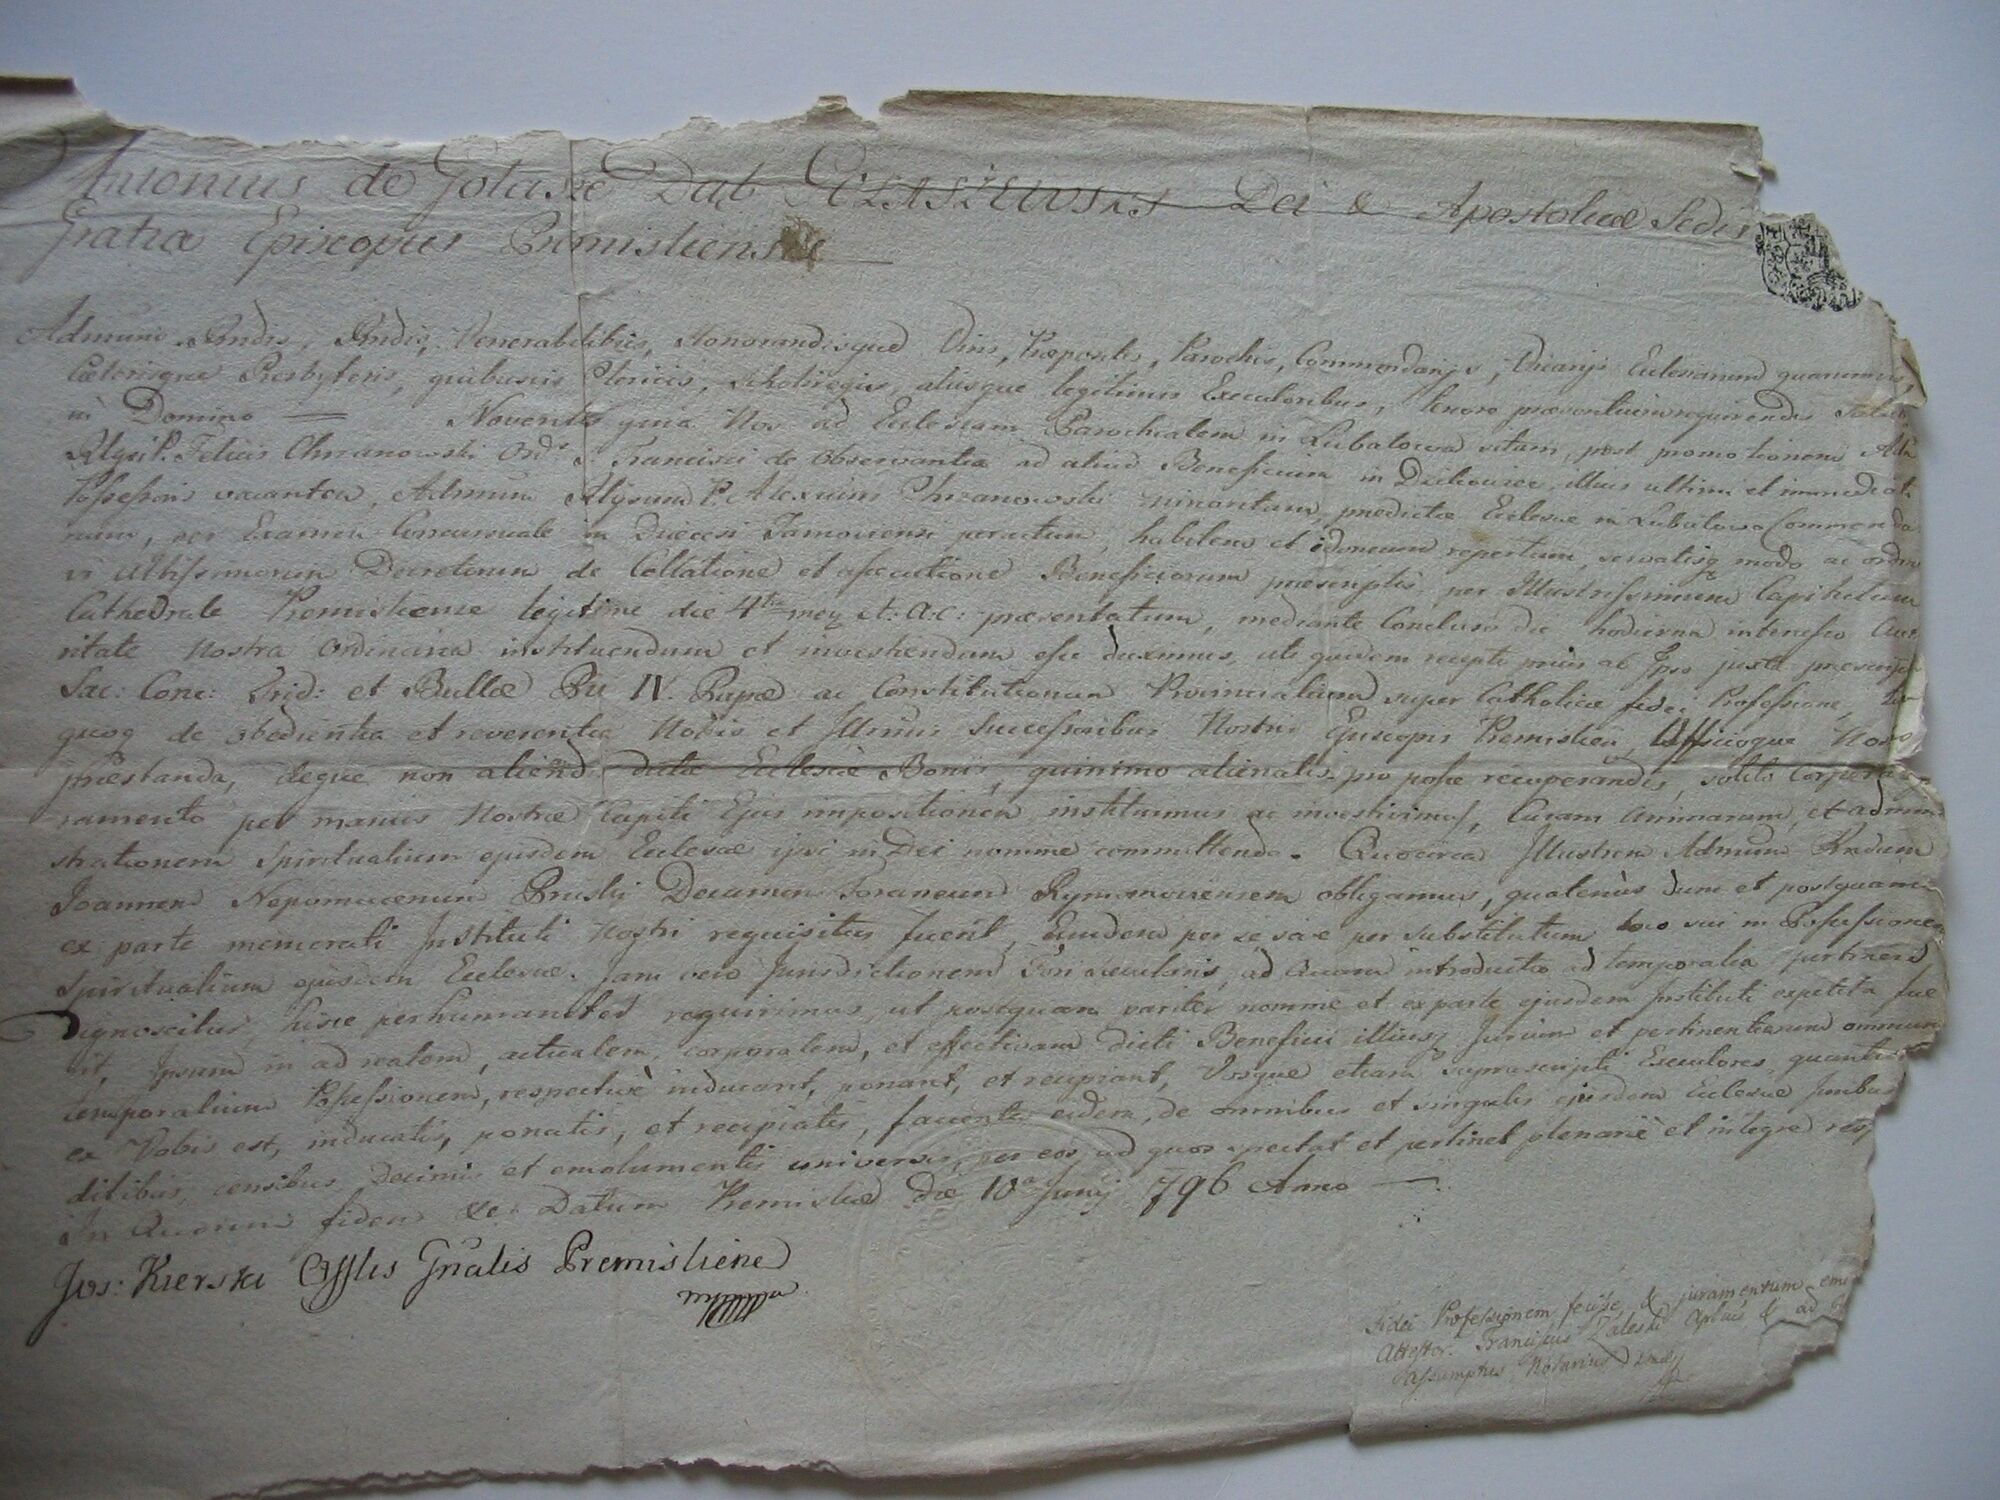 Antonius de Gołasze Dąb GOŁASZEWSKI Dei & Apostolicæ Sedis
Gratia Episcopus Premisliensis
Admum Rndis, Rndis, Venerabilibus, Honorandisque Dnis, Præpositis, Parochis, Commendarijs, Vicarijs Ecclesiarum quarumvis,
Cæterisque Presbyteris, quibusvis Clericis, aliisque legitimis Executoribus, tenore præsentium requirendis Salutem
in Domino Noveritis quia Nos ad Ecclesiam Parochialem in Lubatowa sitam, post promotionem
P. Felicis Chrzanowski Ord. S. Francisci de Observantia ad aliud Beneficium in illius ultimi et immediati
Possessoris vacantem, Admum P. Alexium Chrzanowski predictæ Ecclesiæ in Lubatowa Commenda
rium, per Examen Concursuale in Diæcesi Tarnoviensi peractum, habilem et idoneum repertum, servatisq modo ac ordine
vi Altissimorum Decretorum de Collatione et Beneficiorum præscriptis, per Illustrissimum Capitulum
Cathedrale Premisliense legitime die 4ta maij A: a: c: præsentatum, mediante Concluso die hodierna Aucto
ritate Nostra Ordinaria instituendum et investiendum esse duximus, uti quidem recepta prius ab Ipso juxta præscrip
Sac: Conc: Trid: et Bullæ Pii IV. Papæ ac Constitutionum Provincialium super Catholicæ fidei Professione,
quoq de obedientia et reverentia Nobis et Illmis Successoribus Nostris Episcopis Premislien, Officioque Nostro
præstanda, deque non aliend dictæ Ecclesiæ Bonis, quinimo alienatis pro posse recuperandis, solito Corporali
ramento per manus Nostræ Capiti Ejus impositionem instituimus ac investivimus, Curam Animarum, et admini
strationem Spiritualium ejusdem Ecclesiæ ipsi in Dei nomine committendo. Quocirca Illustrem Admum Rndum
Joannem Nepomucenum Decanum Foraneum Rymanoviensem obligamus, quatenùs dum et postquam
ex parte memorati Instituti Nostri requisitus fuerit, Eundem per se sive per substitutum loco sui in Possessionem
Spiritualium ejusdem Ecclesiæ. Jam vero Jurisdictionem Fori Sæcularis, ad Quam introductio ad temporalia pertinere
dignoscitur, hisce perhumaniter requirimus, ut postquam pariter nomine et ex parte ejusdem Instituti expetita fue
rit, Ipsum in ad realem, actualem, corporalem, et effectivam dicti Beneficii illiusq Jurium et pertinentiarum omnium
temporalium Possessionem, respectivè inducant, ponant, et recipiant, Vosque etiam suprascripti Executores, quantum
ex Vobis est, inducatis, ponatis, et recipiatis, facientes eidem, de omnibus et singulis ejusdem Ecclesiæ
ditibus, censibus, Decimis et emolumentis universis, per eos ad quos spectat et pertinet plenariè et integre
In Quorum fidem &c. Datum Premisliæ Die 10a Junij 796 Anno
Jos: Kierski Offlis Gnalis Premisliens
Fidei Professionem fecisse, & juramentum
Attestor. Franciscus Zaleski Aplicus & ad
assumptus Notarius